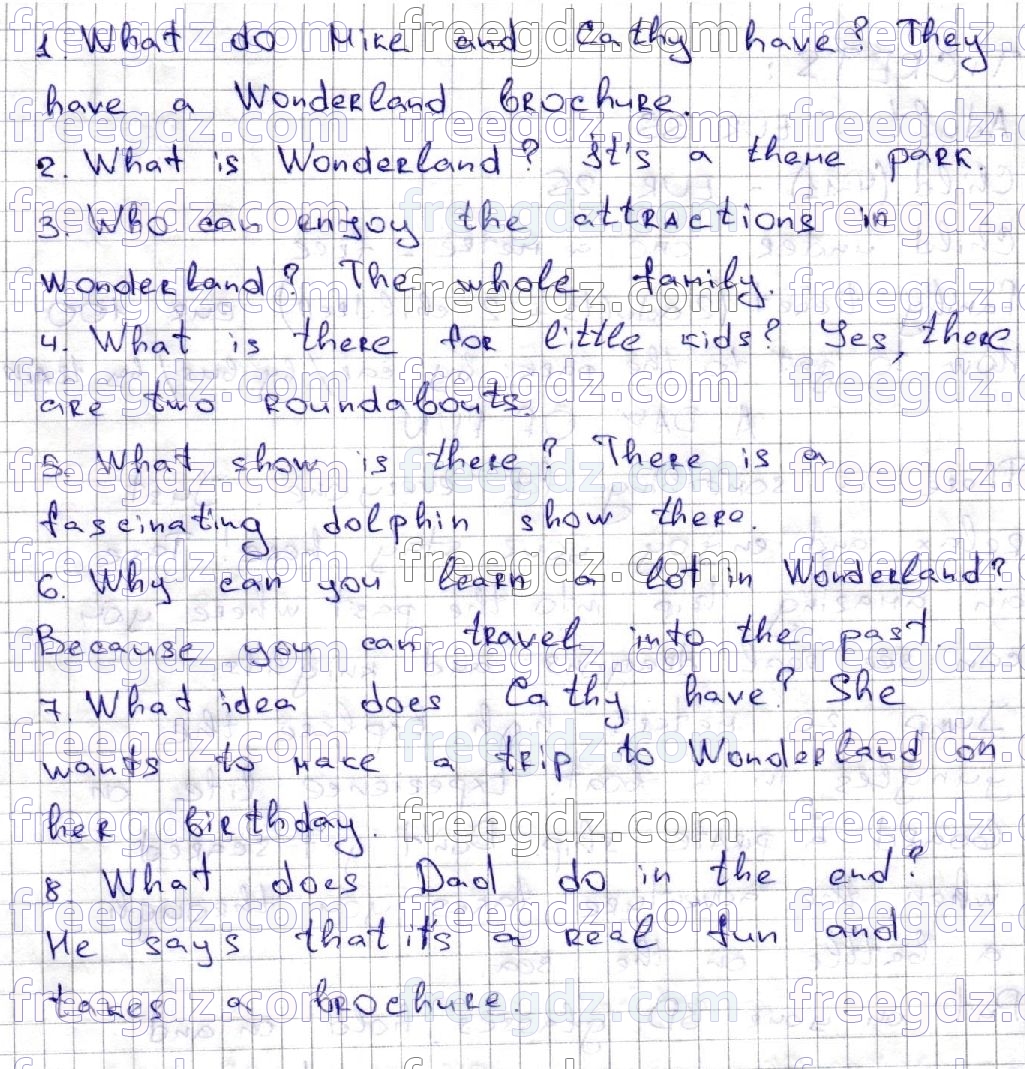 1. What do Mike and Cathy have? They
have a Wonderland brochure.
2. What is Wonderland? It's a theme park.
3. Who can enjoy the attractions in
Wonderland? The whole family.
4. What is there for little kids? Yes, there
are two roundabouts.
5. What show is there? There is a
fascinating dolphin show there.
6. Why can you learn a lot in Wonderland?
Because you can travel into the past.
7. What idea does Cathy have? She
wants to make a trip to Wonderland on
her birthday.
8. What does Dad do in the end?
He says that it's a real fun and
takes a brochure.
freegdz.com